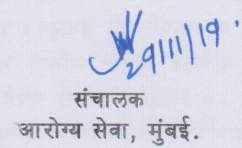 29/11/19.
संचालक
आरोग्य सेवा, मुंबई.